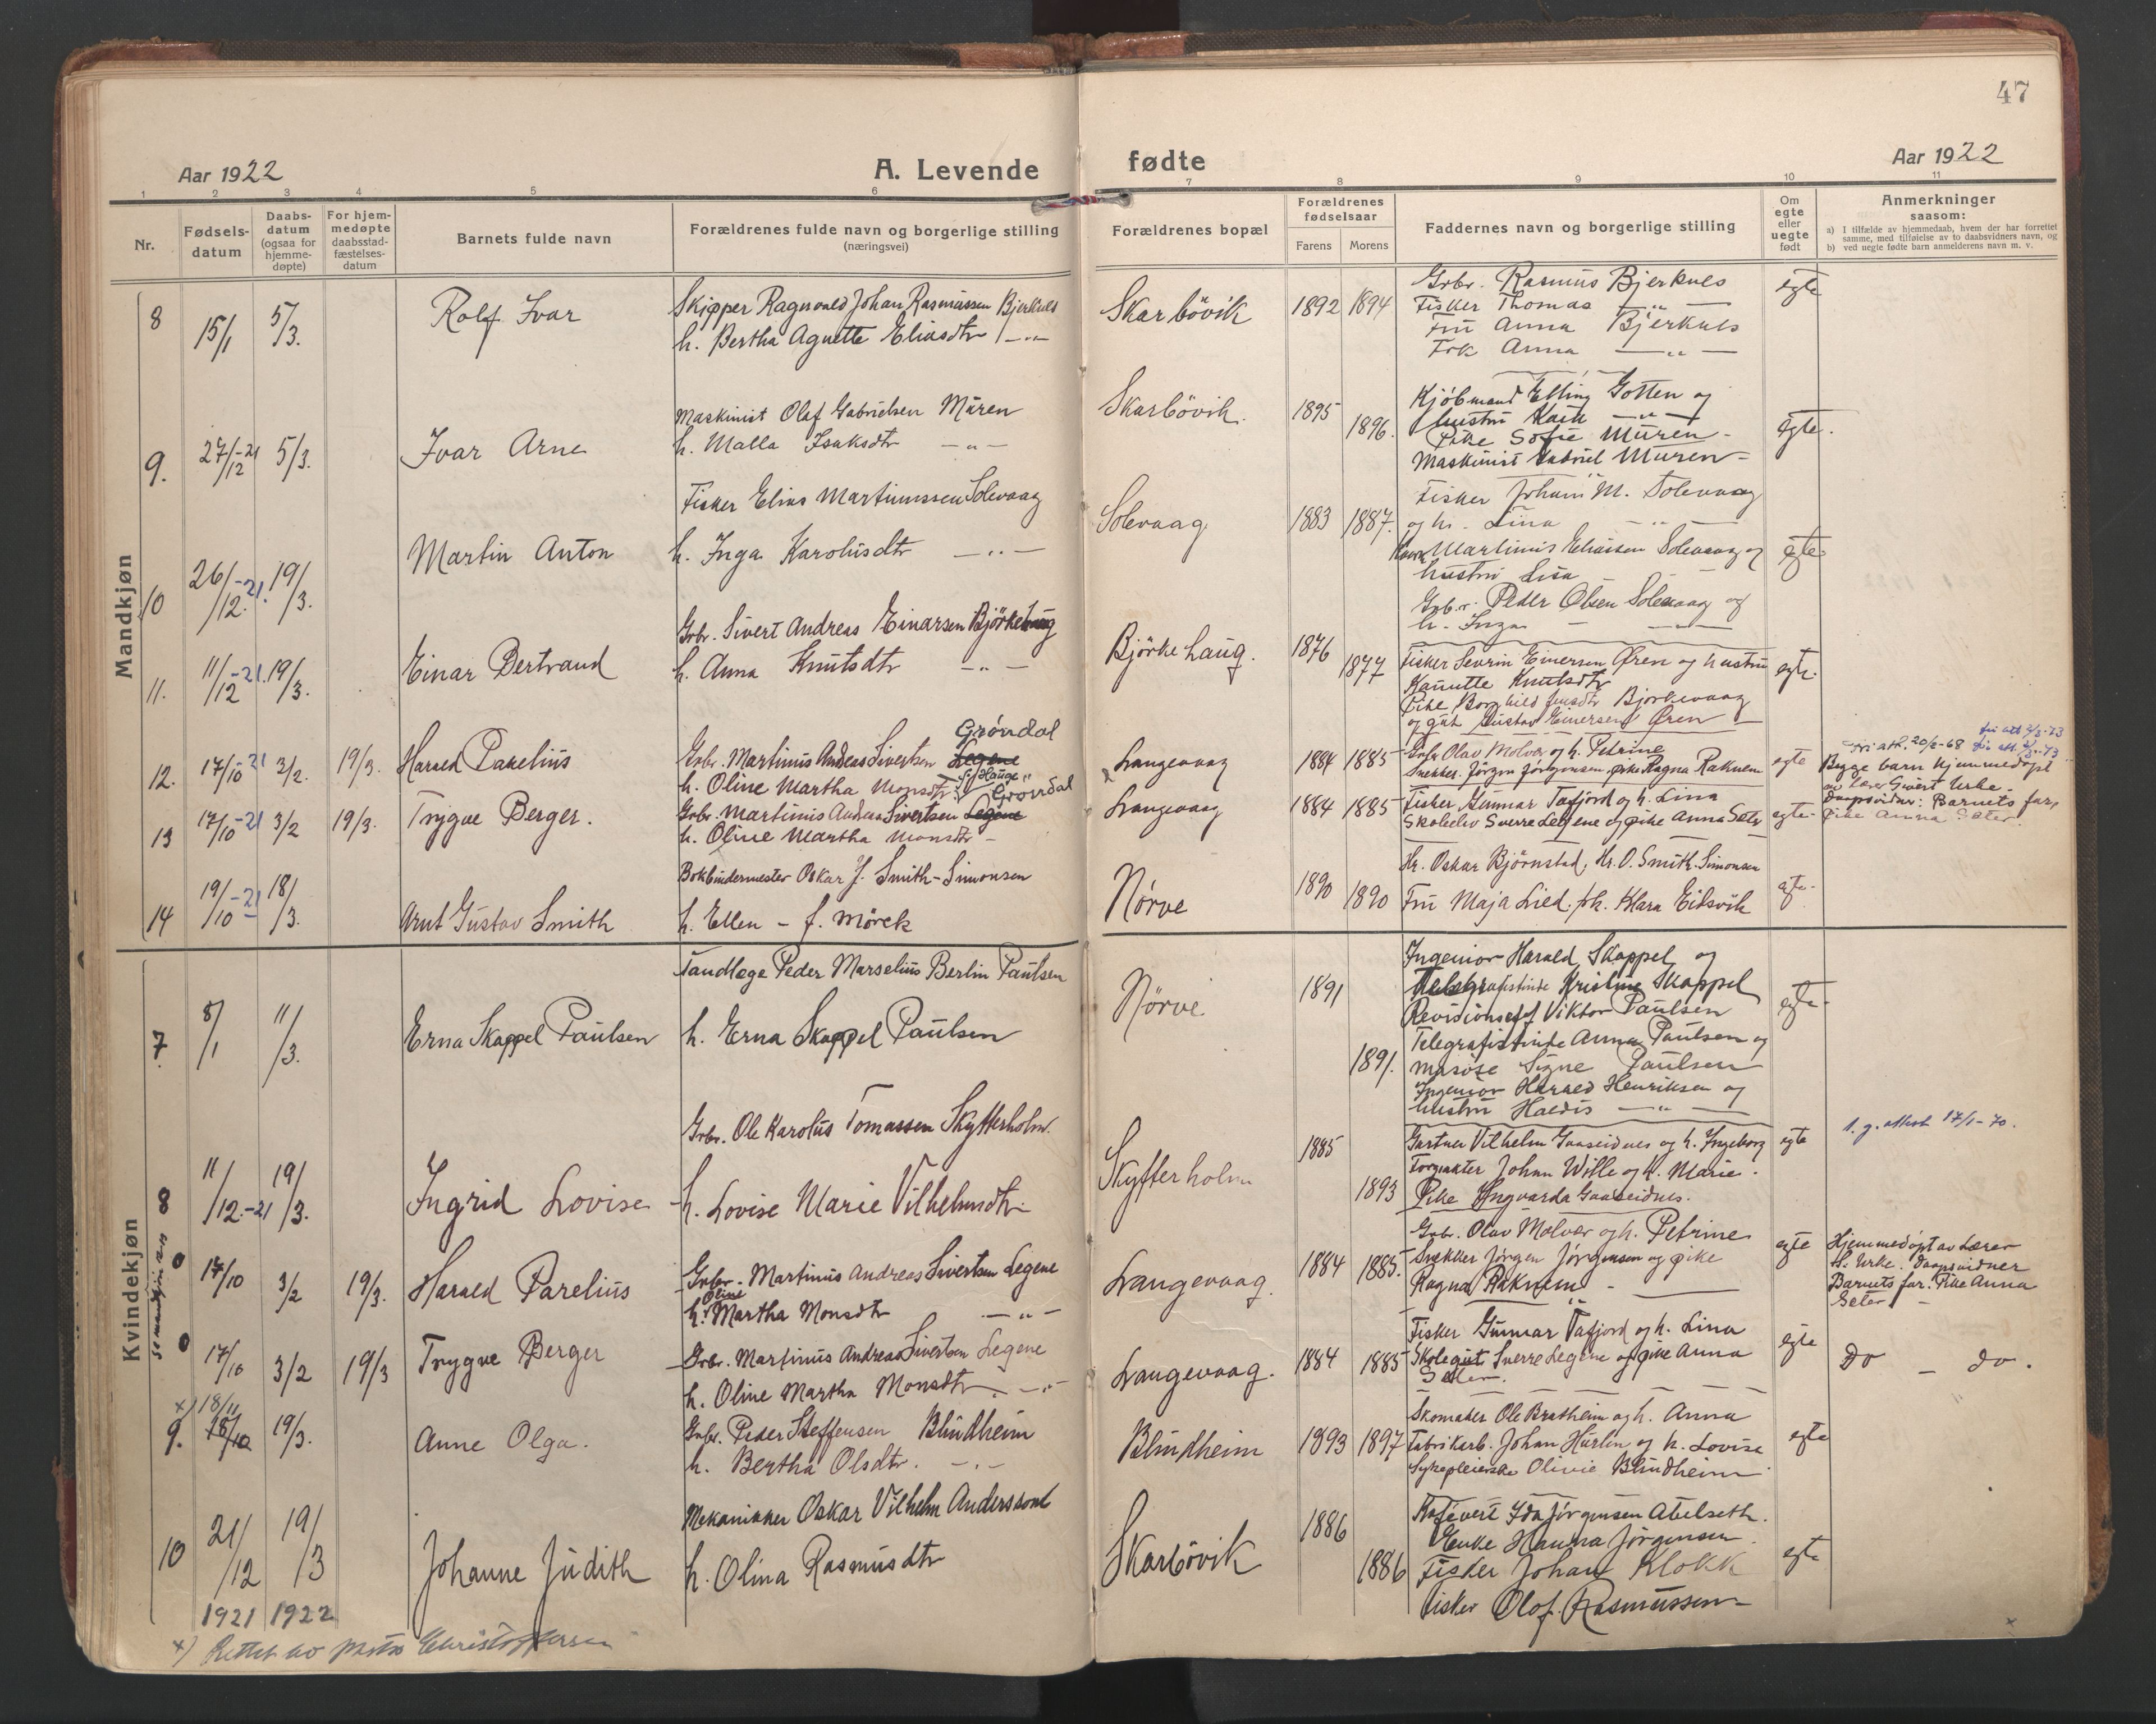 47
Aar 1922
A. Levende fødte
Aar 1922
1 2 3 4 5 6 7 8 9 10 11
Nr.
Fødsels-
datum
Daabs-
datum
(ogsaa for
hjemme-
døpte)
For hjem-
medøpte
daabsstad-
fæstelses-
datum
Barnets fulde navn
Forældrenes fulde navn og borgerlige stilling
(næringsvei)
Forældrenes bopæl
Forældrenes
fødselsaar
Farens Morens
Faddernes navn og borgerlige stilling
Om
egte
eller
uegte
født
Anmerkninger
saasom:
a) I tilfælde av hjemmedaab, hvem der har forrettet
samme, med tilføielse av to daabsvidners navn, og
b) ved uegte fødte barn anmelderens navn m. v.
Mandkjøn
8 15/1 5/3. Rolf Ivar
Skipper Ragnvald Johan Rasmussen Bjerknes
h. Bertha Agnette Eliasdtr —"—
Skarbövik 1892 1894
Grbr. Rasmus Bjerknes
Fisker Thomas —"—
Fru Anna Bjerknes
Frk Anna —"—
egte
9. 27/12-21 5/3. Ivar Arne
Maskinist Olaf Gabrielsen Muren
h. Malla Isaksdtr —"—
Skarbövik. 1895 1896.
Kjöbmand Elling Gotten og
hustru —"—
Pike Sofie Muren -
Maskinist Gabriel Muren -
egte.
10 26/12-21. 19/3. Martin Anton
Fisker Elias Martinussen Solevaag
h. Inga Karolusdtr —"—
Solevaag 1883 1887.
Fisker Johan M. Solevaag
og h. Lina —"—
Martinus Eliassen Solevaag og
hustru Lisa
Grbr. Peder Olsen Solevaag og
h. Inga —"—
egte.
11. 11/12-21. 19/3. Einar Bertrand
Grbr. Sivert Andreas Einarsen Björkehaug
h. Anna Knutsdtr —"—
Björkehaug. 1876 1877
Fisker Sevrin Einersen Øren og hustru
Kanutte Knutsdtr
Pike Borghild Bjorkevaag
og gut Gustav Einersen Øren
egte.
12. 17/10-21 3/2. 19/3. Harald Parelius
Grbr. Martinus Andreas Sivertsen Legene Gröndal
h. Oline Martha Monsdtr f. Hauge Gröndal
Langevaag 1884 1885
Grbr. Olav Molvær og h. Petrine
Snekker Jörgen Jörgensen, pike Ragna Raknem
egte
Fri att. 20/2-68
Begge barn hjemmedöpt
av lærer Sivert Urke.
Daapsvidner: Barnets far,
pike Anna Sæter.
13 17/10-21 3/2 19/3. Trygve Berger.
Grbr. Martinus Andreas Sivertsen Legene
h. Oline Martha Monsdtr -
Langevaag 1884 1885
Fisker Gunnar Tafjord og h. Lina
Skoleelev Sverre Legene og pike Anna Sæter
egte.
14 19/10-21 18/3. Arnt Gustav Smith
Bokbindermester Oskar J. Smith-Simonsen
h. Ellen - f. Mörck
Nörve 1890 1890
Hr. Oskar Björnstad, Hr. O. Smith-Simonsen
Fru Maja Lied. frk. Klara Eiksvik
egte.
Kvindekjøn
7. 8/1 11/3. Erna Skappel Paulsen
Tandlæge Peder Marselius Berlin Paulsen
h. Erna Skappel Paulsen
Nörve. 1891 1891.
Ingeniør Harald Skappel og
Telegrafistinde Kristine Skappel
Revisionschef Viktor Paulsen
Telegrafistinde Anna Paulsen og
masöse Signe Paulsen
Ingeniør Harald Henriksen og
hustru Haldis —"—
egte.
8 11/12-21 19/3. Ingrid Lovise
Grbr. Ole Karolus Tomassen Skytterholm.
h. Lovise Marie Vilhelmsdtr.
Skytterholm 1885 1893
Gartner Vilhelm Gaaseidnes og h. Ingeborg
Johan Wille og h. Marie.
Pike Ingvarda Gaaseidnes.
egte
1. g. attest 17/1-70.
se mandkjön
0 17/10 3/2 19/3. Harald Parelius
Grbr. Martinus Andreas Sivertsen Legene
h. Oline Martha Monsdtr —"—
Langevaag. 1884 1885.
Grbr. Olav Molvær og h. Petrine
Snekker Jörgen Jörgensen og pike
Ragna Raknem
egte
Hjemmedöpt av Lærer
S. Urke. Daapsvidner
Barnets far. Pike Anna
Seter -
0 17/10 3/2 19/3 Trygve Berger
Grbr. Martinus Andreas Sivertsen Legene
h. Oline Martha Monsdtr. —"—
Langevaag. 1884 1885
Fisker Gunnar Tafjord og h. Lina
Skolegut Sverre Legene og pike Anna
Seter.
egte
Do — do.
x) 18/11
9. 18/10 19/3. Anne Olga.
Grbr. Peder Steffensen Blindheim
h. Bertha Olsdtr. —"—
Blindheim 1893 1897
Skomaker Ole Bratheim og h. Anna
Fabrikarb. Johan Hurlen og h. Lovise
Sykepleierske Olivie Blindheim
egte
10 21/12 19/3 Johanne Judith
1921 1922
Mekaniker Oskar Vilhelm Anderssond
h. Olina Rasmusdtr
Skarbövik 1886 1886
Ida Jörgensen Abelseth.
Enke Hanna Jörgensen.
Fisker Johan Klokk
Fisker Olof. Rasmussen -
egte
x) Rettet av pastor Christoffersen